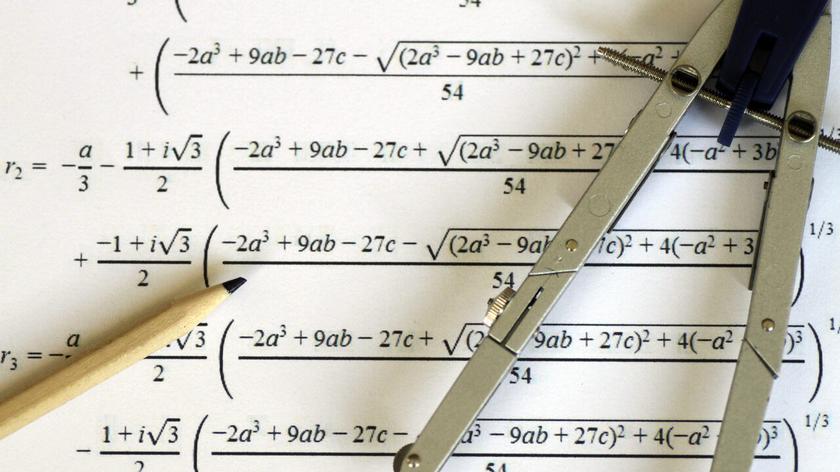 54
+ (−2a³ + 9ab − 27c − √(2a³ − 9ab + 27c)² + −a² +
54
r₂ = −a/3 − 1 + i√3/2 (−2a³ + 9ab − 27c + √(2a³ − 9ab + 27 4(−a² + 3b
54
+ −1 + i√3/2 (−2a³ + 9ab − 27c − √(2a³ − 9ab 7c)² + 4(−a² + 3 )1/3
54
r₃ = −a √3/2 (−2a³ + 9ab − 27c + √(2 9ab + 27c)² + 4(−a² )³)
54
− 1 + i√3/2 (−2a³ + 9ab − 27c − a³ − 9ab + 27c)² + 4(−a² )³)1/3
54